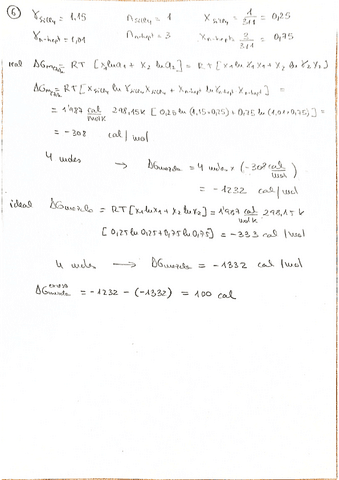 ⑥ γSiCl4 = 1.15 nSiCl4 = 1 XSiCl4 = 1/3+1 = 0,25
γn-hept = 1,01 nn-hept = 3 Xn-hept = 3/3+1 = 0,75
real ΔGmezcla = RT [x1 ln a1 + x2 ln a2] = RT [x1 ln γ1 x1 + x2 ln γ2 x2]
ΔGmezcla = RT [XSiCl4 ln γSiCl4 XSiCl4 + Xn-hept ln γn-hept · Xn-hept] =
= 1'987 cal/molK 298,15K [0,25 ln (1,15·0,25) + 0,75 ln (1,01·0,75)] =
= -308 cal/mol
4 moles → ΔGmezcla = 4 moles × (-308 cal/mol)
= -1232 cal/mol
ideal ΔGmezcla = RT [x1 ln x1 + x2 ln x2] = 1'987 cal/molK 298,15 K
[0,25 ln 0,25 + 0,75 ln 0,75] = -333 cal/mol
4 moles → ΔGmezcla = -1332 cal/mol
ΔGmezcla exceso = -1232 - (-1332) = 100 cal